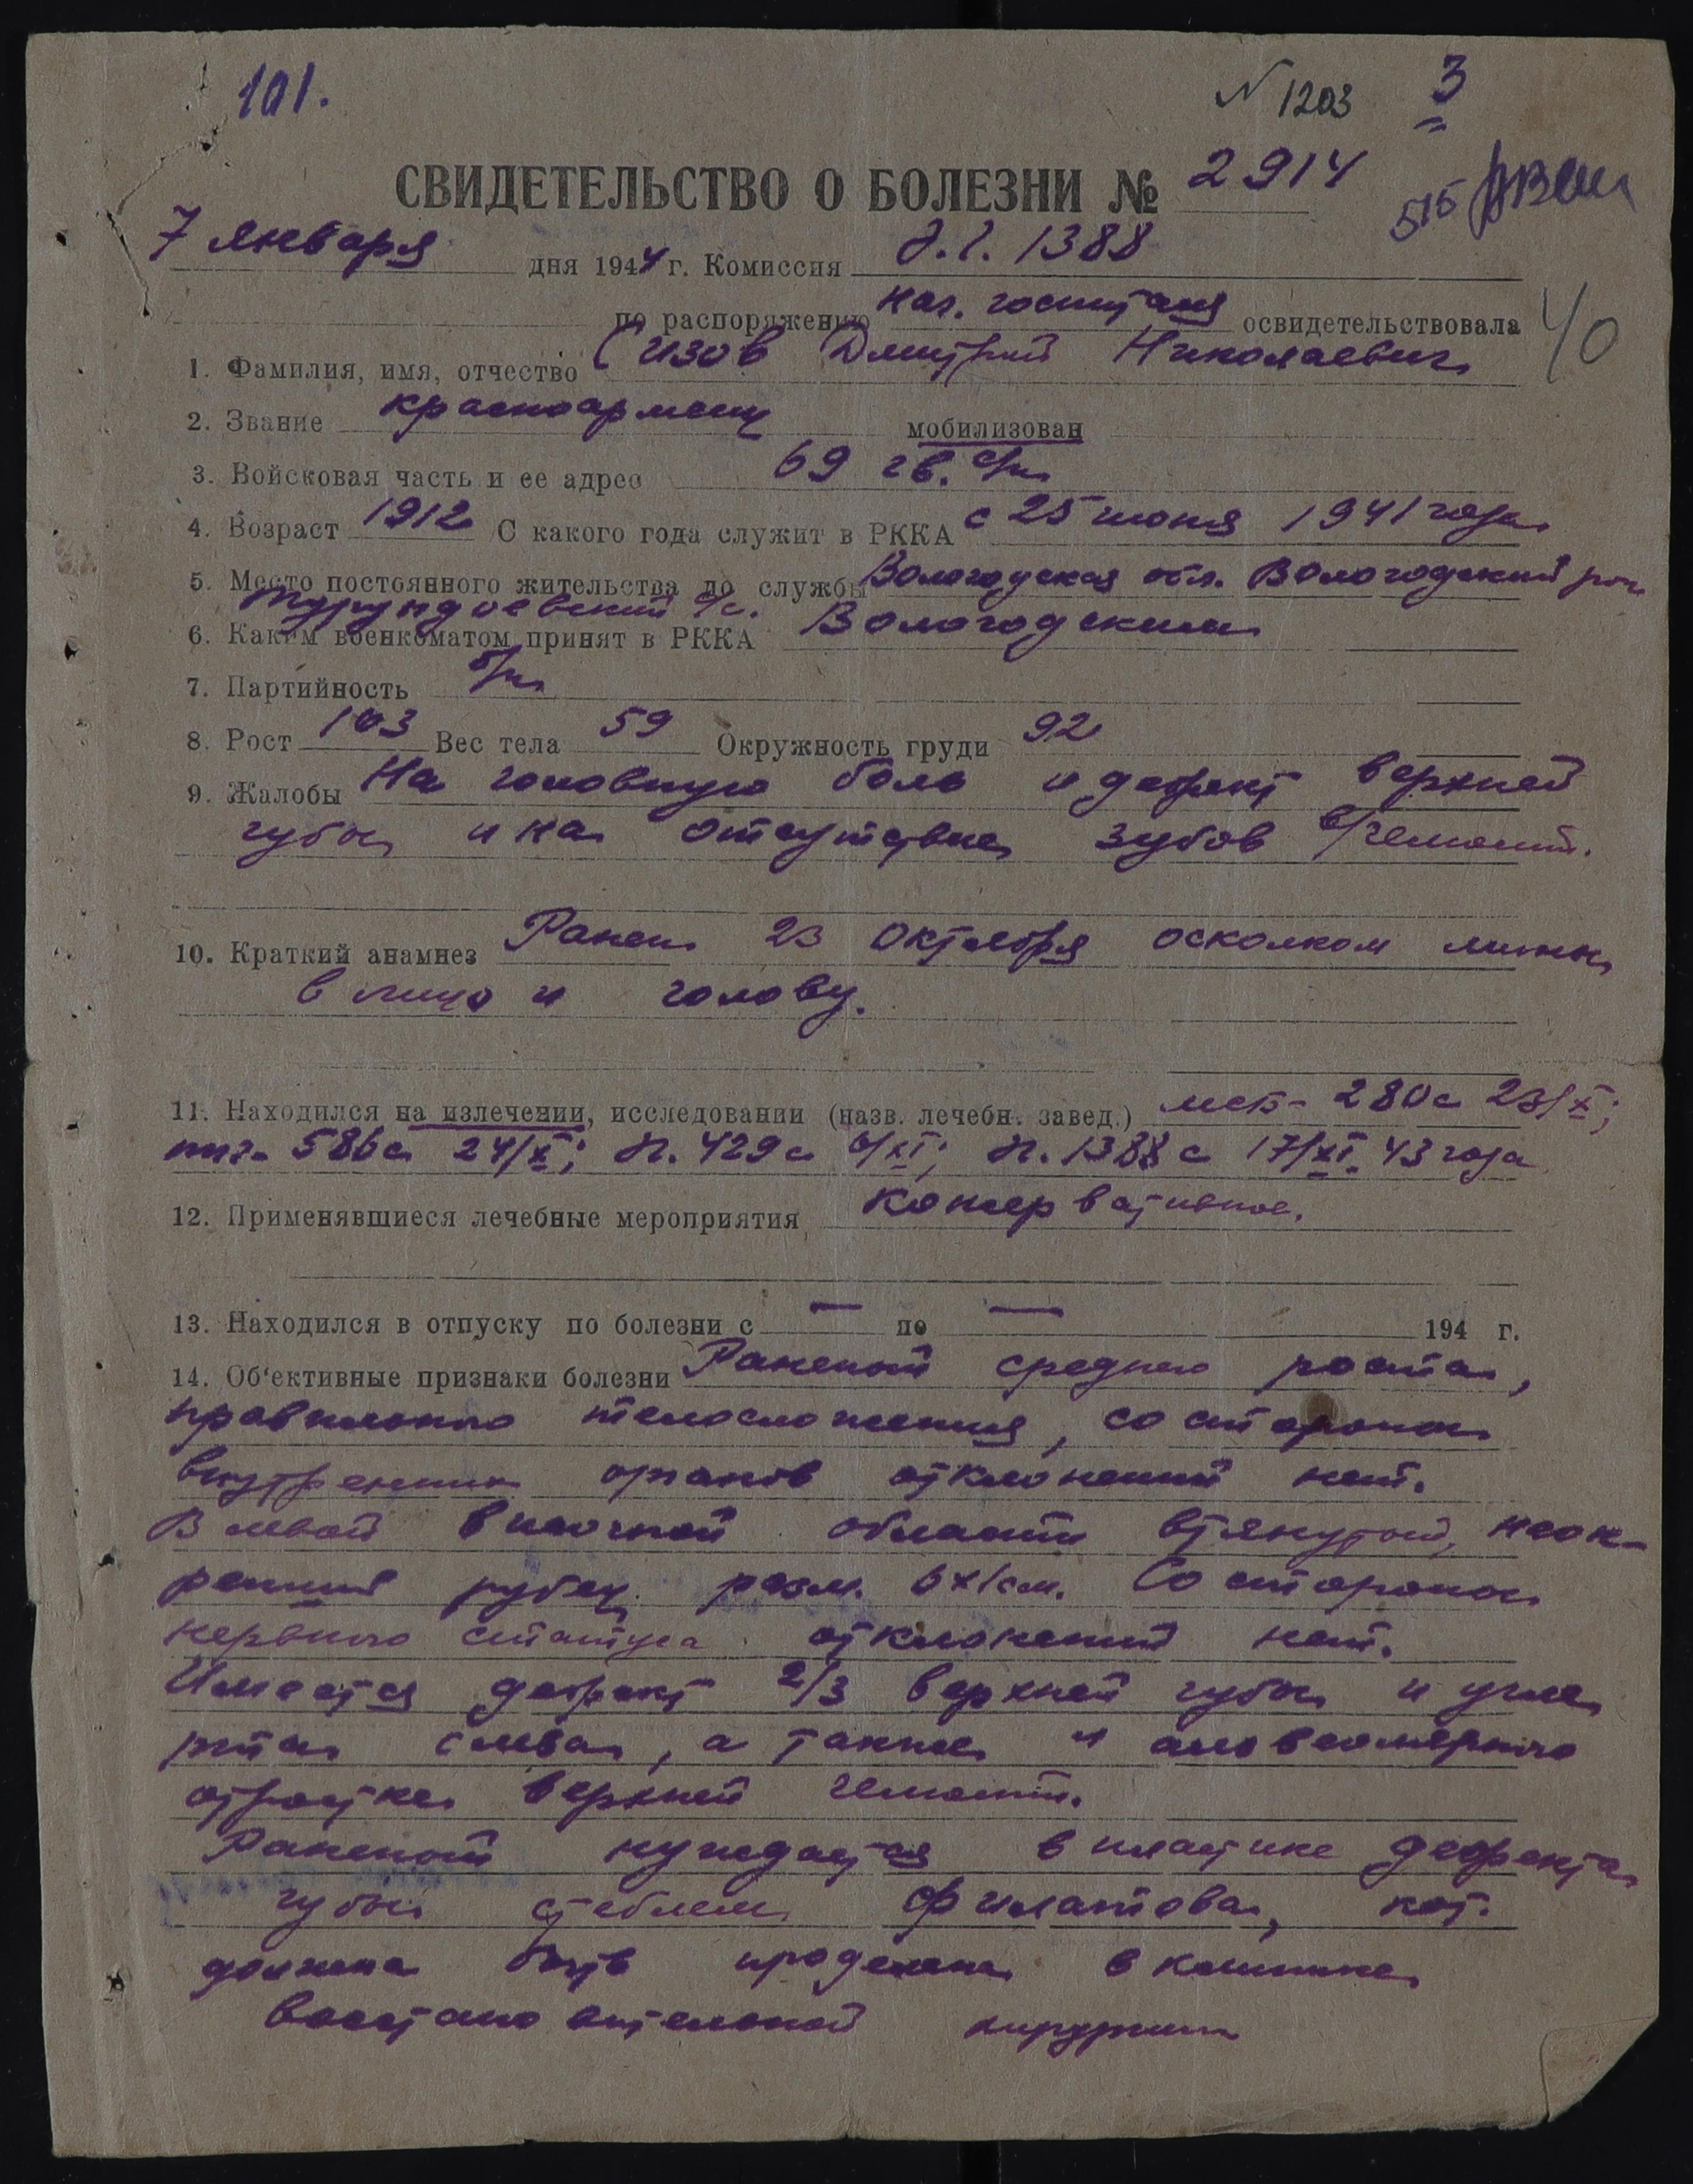 101.
№ 1203 3
СВИДЕТЕЛЬСТВО О БОЛЕЗНИ № 2914
515
7 января дня 1944 г. Комиссия э.г. 1388
по распоряжению нач. госпиталя освидетельствовала
40
1. Фамилия, имя, отчество Сизов Дмитрий Николаевич
2. Звание красноармеец мобилизован
3. Войсковая часть и ее адрес 69 гв. с/п
4. Возраст 1912 С какого года служит в РККА с 25 июня 1941 года
5. Место постоянного жительства до службы Вологодская обл. Вологодский р-он
Турундаевский с/с.
6. Каким военкоматом принят в РККА Вологодским
7. Партийность б/п
8. Рост 163 Вес тела 59 Окружность груди 92
9. Жалобы На головную боль и дефект верхней
губы и на отсутствие зубов в/челюсти.
10. Краткий анамнез Ранен 23 октября осколком мины
в лицо и голову.
11. Находился на излечении, исследовании (назв. лечебн. завед.) мсб- 280 с 23/X;
ппг- 586 с 24/X; э.г. 429 с 6/XI; э.г. 1388 с 17/XI. 43 года
12. Применявшиеся лечебные мероприятия Консервативное.
13. Находился в отпуску по болезни с — по — 194 г.
14. Об'ективные признаки болезни Раненый среднего роста,
правильного телосложения, со стороны
внутренних органов отклонений нет.
В левой височной области втянутый, неок-
репший рубец разм. 6х1см. Со стороны
нервного статуса отклонений нет.
Имеется дефект 2/3 верхней губы и угла
рта слева, а также и альвеолярного
отростка верхней челюсти.
Раненый нуждается в пластике дефекта
губы стеблем Филатова, кот.
должна быть проделана в клинике
восстановительной хирургии